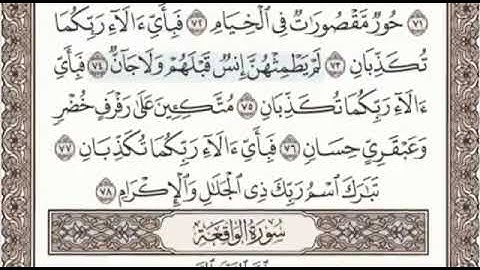 ٧١ حُورٌ مَّقْصُورَاتٌ فِي الْخِيَامِ ٧٢ فَبِأَيِّ ءَالَاءِ رَبِّكُمَا
تُكَذِّبَانِ ٧٣ لَمْ يَطْمِثْهُنَّ إِنسٌ قَبْلَهُمْ وَلَا جَانٌّ ٧٤ فَبِأَيِّ
ءَالَاءِ رَبِّكُمَا تُكَذِّبَانِ ٧٥ مُتَّكِـِٔينَ عَلَىٰ رَفْرَفٍ خُضْرٍ
وَعَبْقَرِيٍّ حِسَانٍ ٧٦ فَبِأَيِّ ءَالَاءِ رَبِّكُمَا تُكَذِّبَانِ ٧٧
تَبَارَكَ اسْمُ رَبِّكَ ذِي الْجَلَالِ وَالْإِكْرَامِ ٧٨
سُورَةُ الْوَاقِعَةِ